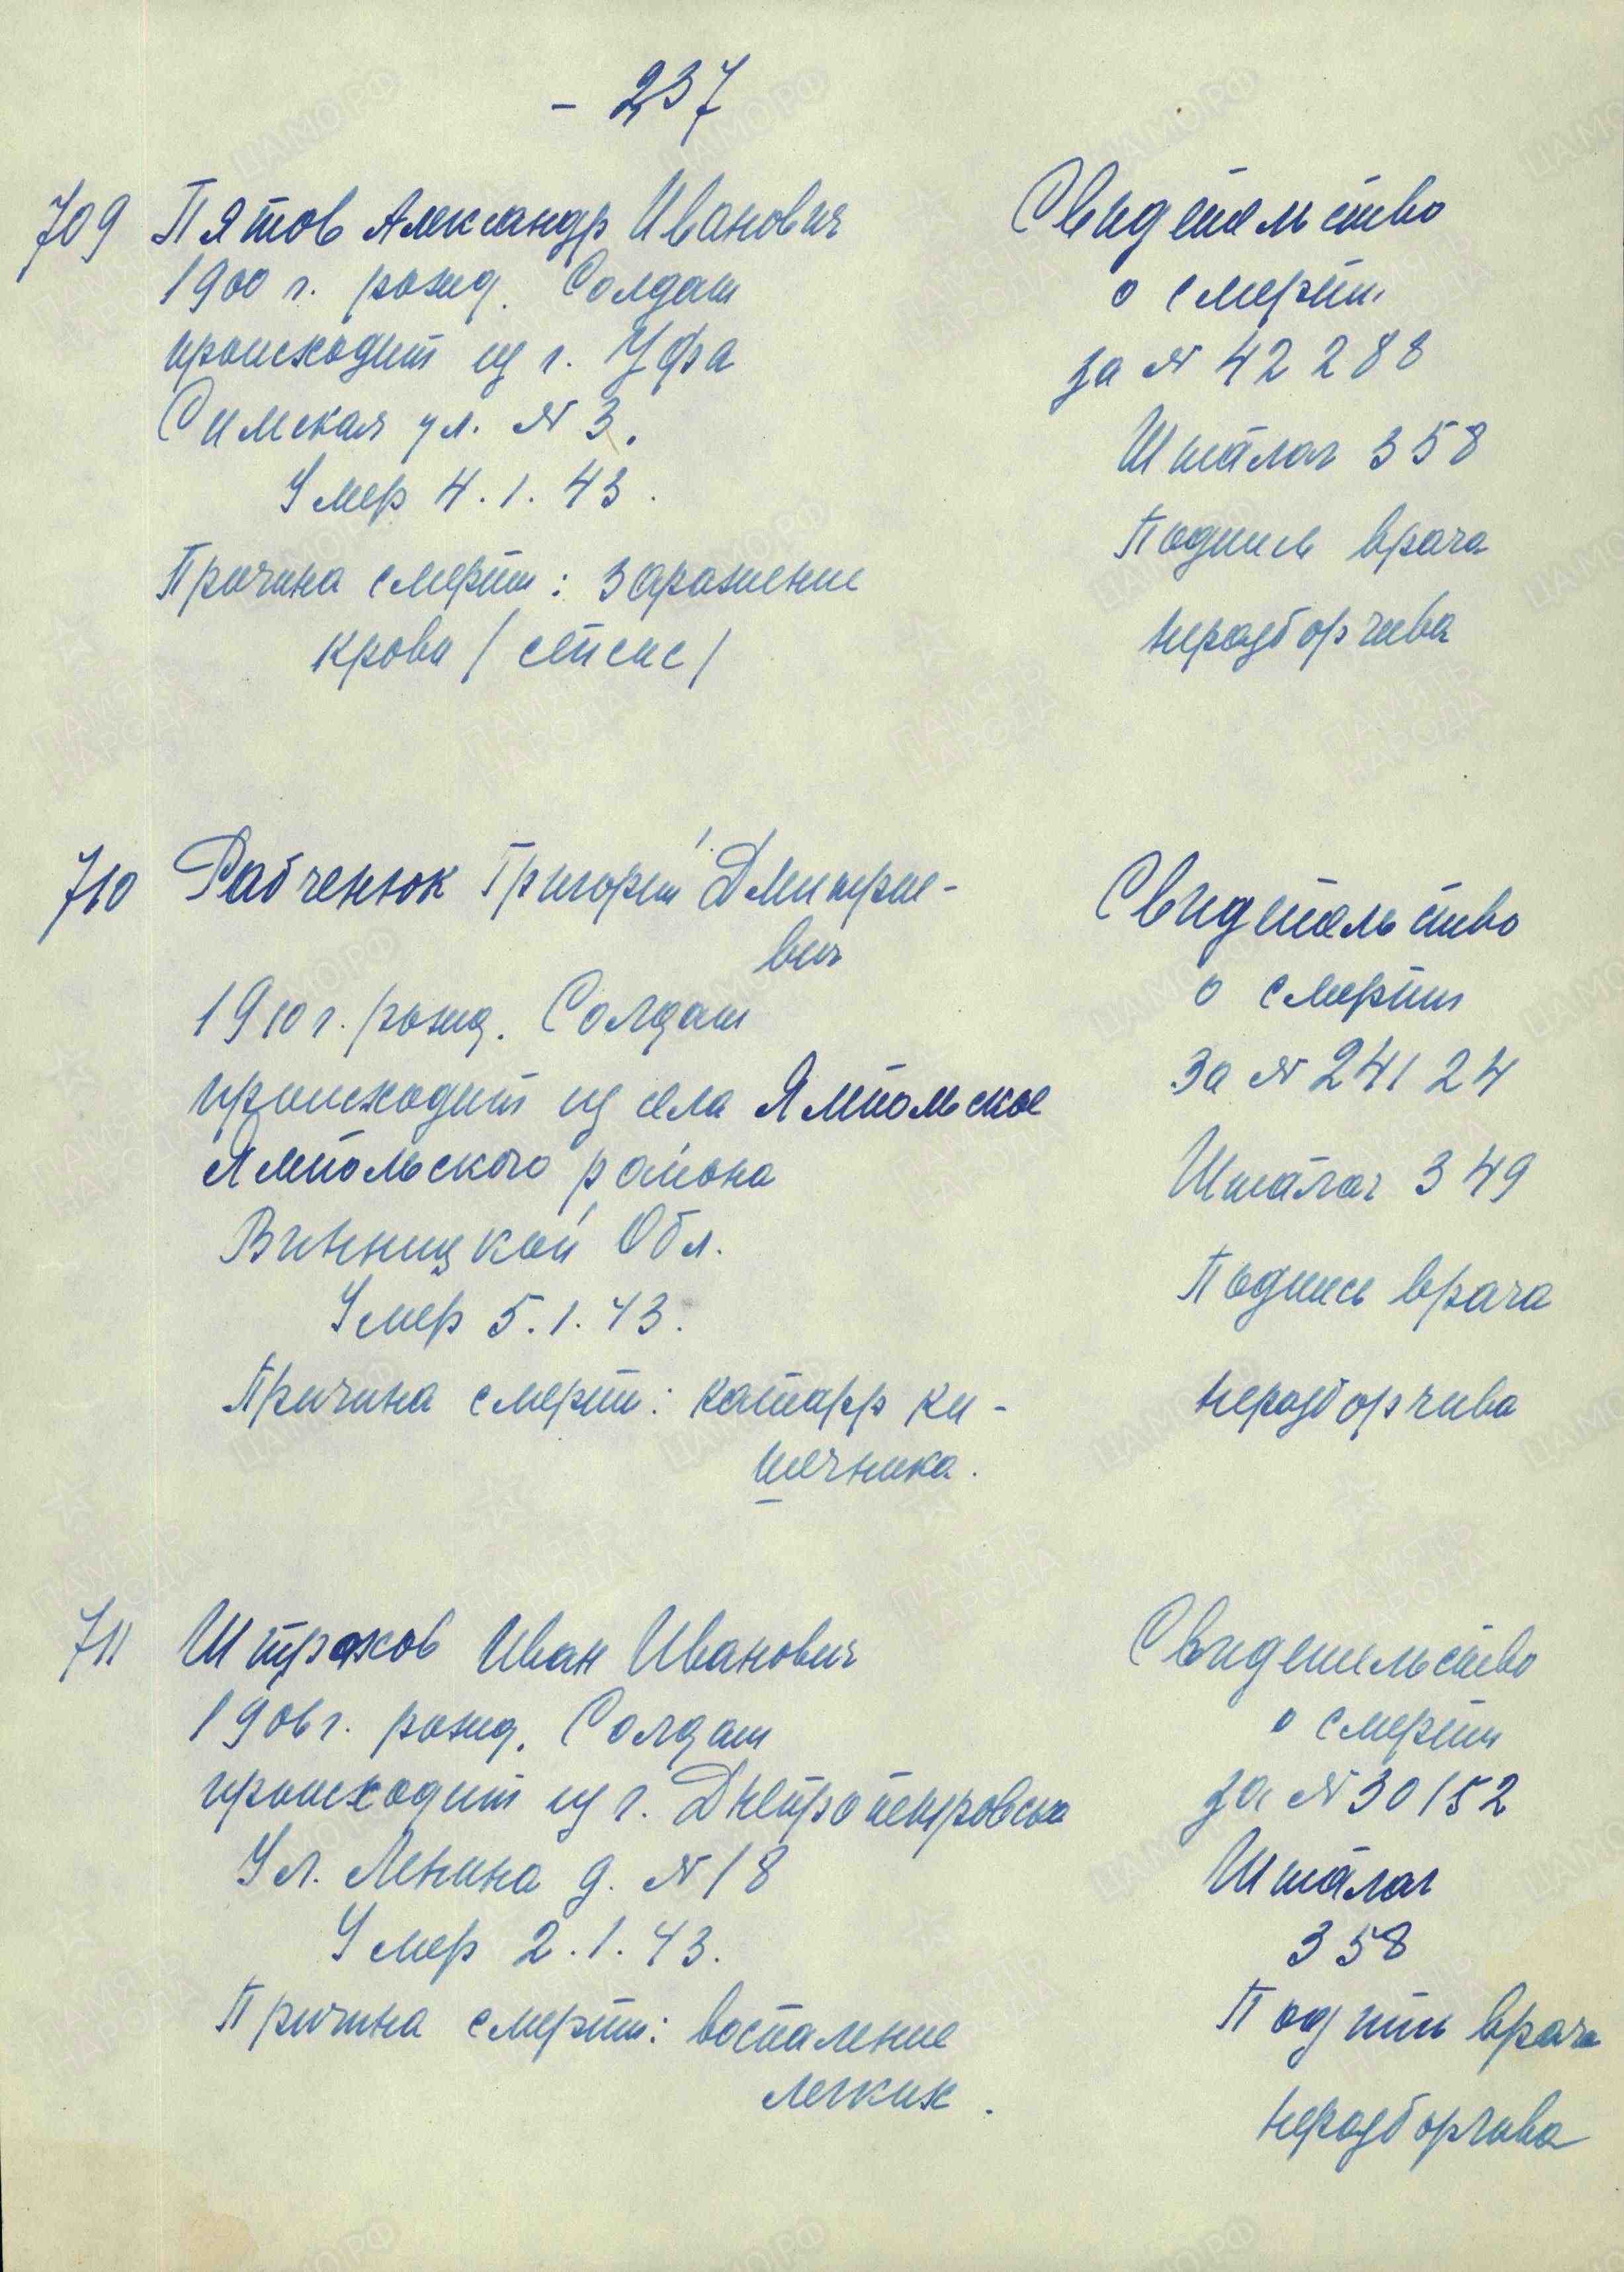 - 237
709 Пятов Александр Иванович
1900 г. рожд. Солдат
происходит из г. Уфа
Симская ул. № 3.
Умер 4.1.43.
Причина смерти: заражение
крови / сепсис /
Свидетельство
о смерти
за № 42288
Шталаг 358
Подпись врача
неразборчива
710 Рабченюк Григорий Дмитрие-
вич
1910 г. рожд. Солдат
происходит из села Ямпольское
Ямпольского района
Винницкой Обл.
Умер 5.1.43.
Причина смерти: катарр ки-
шечника.
Свидетельство
о смерти
за № 24124
Шталаг 349
Подпись врача
неразборчива
711 Штрахов Иван Иванович
1906 г. рожд. Солдат
происходит из г. Днепропетровска
Ул. Ленина д. № 18
Умер 2.1.43.
Причина смерти: воспаление
легких.
Свидетельство
о смерти
за № 30152
Шталаг
358
Подпись врача
неразборчива
ЦАМО.РФ
ПАМЯТЬ
НАРОДА